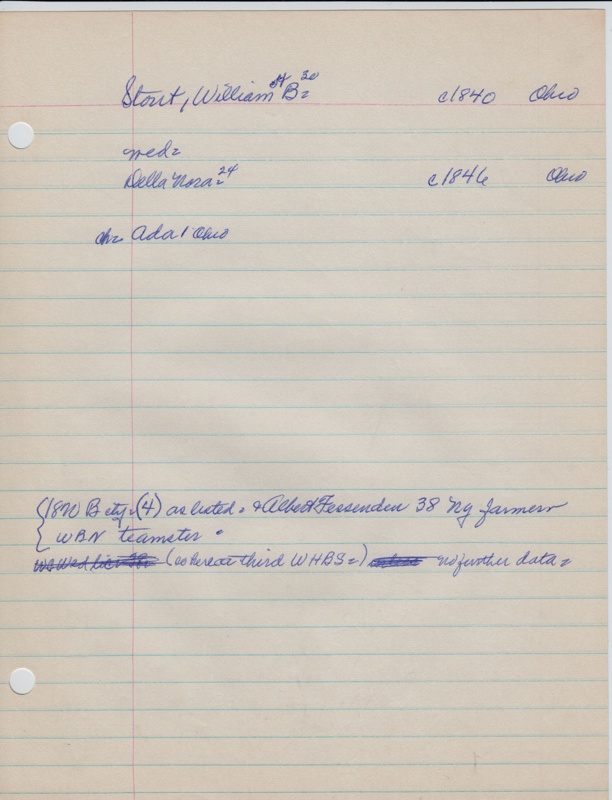 Stout, William H B= 30 c1840 Ohio
med=
Della Nora= 24 c1846 Ohio
ch= Ada 1 Ohio
B cty= (4) as listed= & Albert Fessenden 38 Ny farmer
WBN teamster
third WHBS=) no further data=